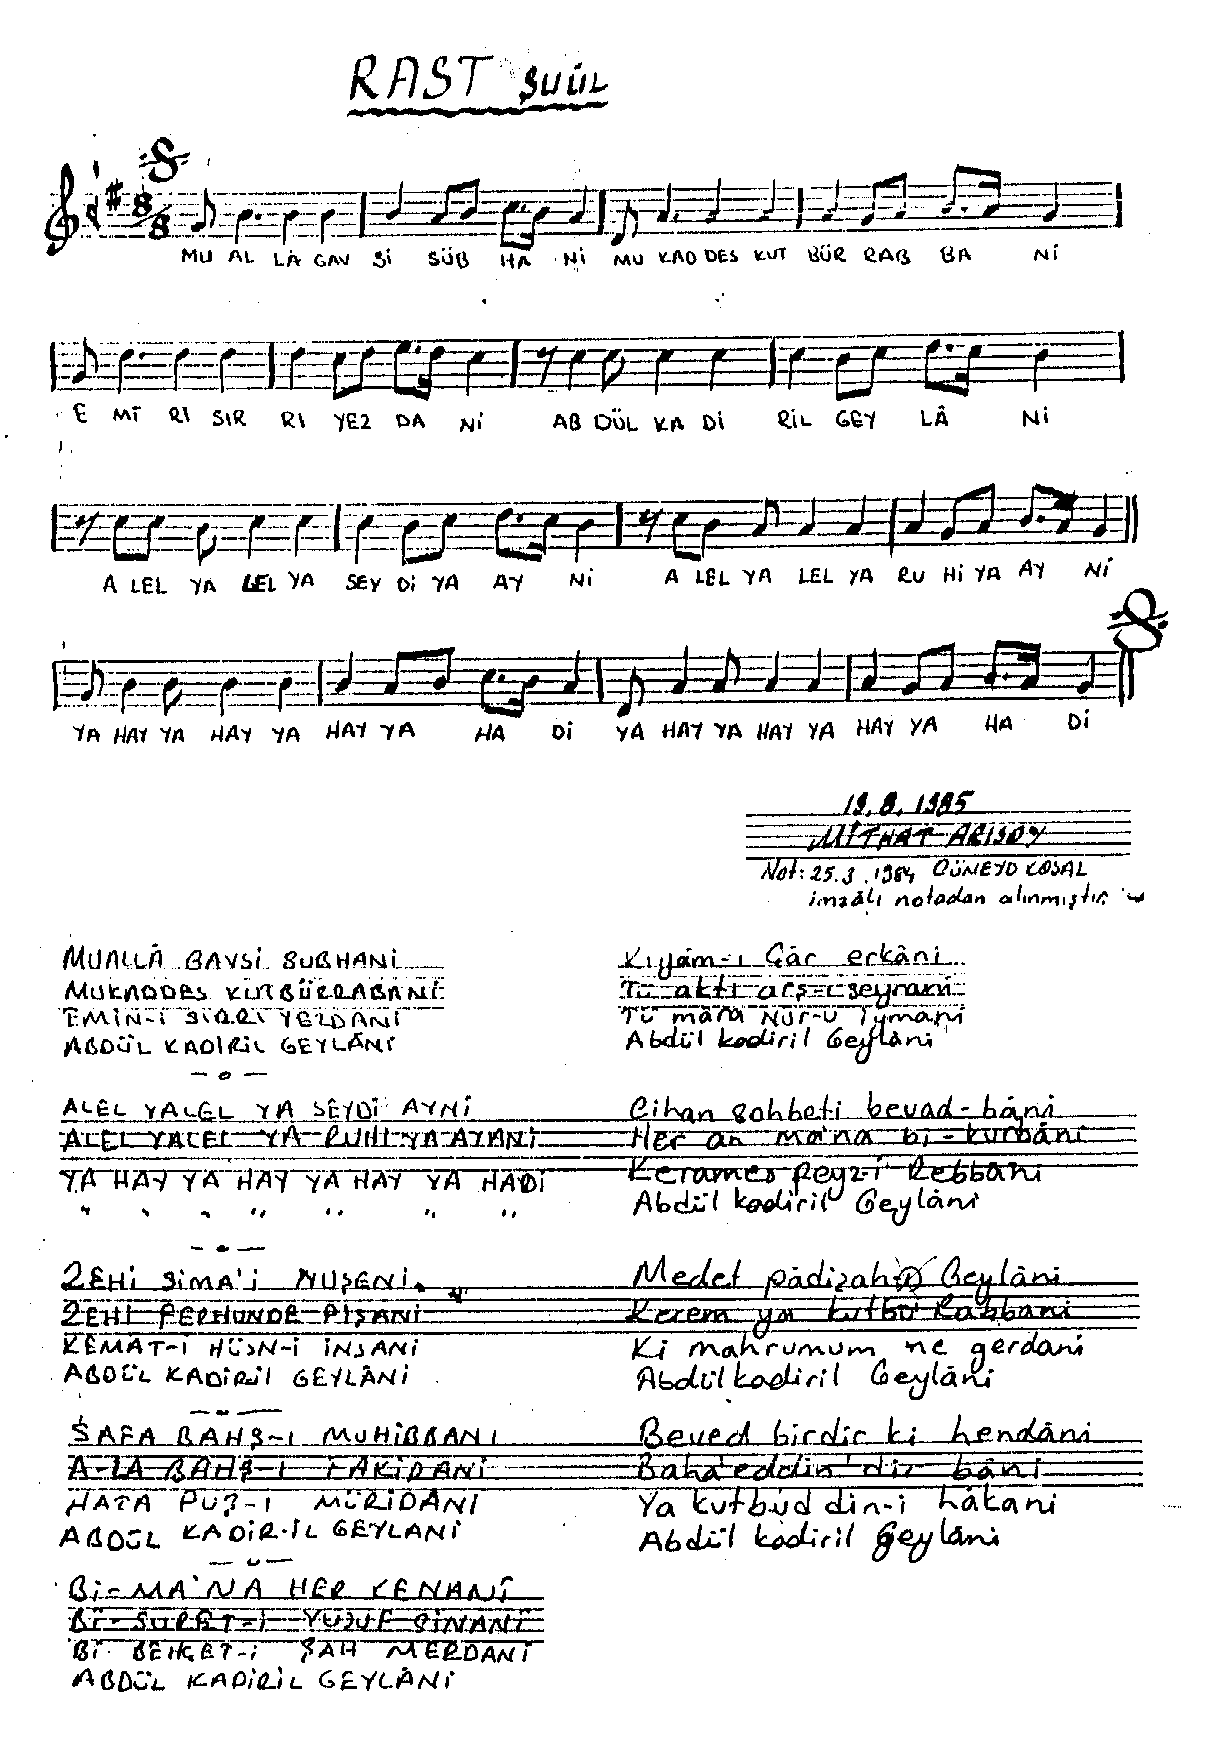 RAST ŞUÛL
8/8
MU AL LÂ GAV Sİ SÜB HA Nİ MU KAD DES KUT BÜR RAB BA Nİ
E Mİ Rİ SIR RI YEZ DA Nİ AB DÜL KA Dİ RİL GEY LÂ Nİ
A LEL YA LEL YA SEY Dİ YA AY Nİ A LEL YA LEL YA RU Hİ YA AY Nİ
YA HAY YA HAY YA HAY YA HA Dİ YA HAY YA HAY YA HAY YA HA Dİ
19.8.1985
MİTHAT ARISOY
Not: 25.3.1984 CÜNEYD KOSAL
imzâlı notadan alınmıştır
MUALLÂ GAVSİ SUBHANİ
MUKADDES KUTBÜRRABANİ
EMİN-İ SIRRI YEZDANİ
ABDÜL KADİRİL GEYLÂNİ
— o —
ALEL YALEL YA SEYDİ AYNİ
ALEL YALEL YA RUHİ YA AYANİ
YA HAY YA HAY YA HAY YA HADİ
" " " " " " "
— o —
ZEHİ SİMA'İ NUŞENİ
ZEHİ FERHUNDE PİŞANİ
KEMAT-İ HÜSN-İ İNSANİ
ABDÜL KADİRİL GEYLÂNİ
— o —
SAFA BAHŞ-I MUHİBBANI
A-LA BAHŞ-I FAKİDANİ
HATA PUŞ-I MÜRİDÂNI
ABDÜL KADİR-İL GEYLANİ
— o —
Bİ-MA'NA HER KENANÎ
Bİ-SURET-İ YUSUF SİNANİ
Bİ BEHÇET-İ ŞAH MERDANİ
ABDÜL KADİRİL GEYLÂNİ
Kıyâm-ı Çâr erkâni
Tü aktı arş-ı seyrani
Tü mâra Nûr-u Iymani
Abdül kadiril Geylâni
Cihan sohbeti bevad-bâni
Her an ma'na bi-kurbâni
Kerames feyz-i Rebbani
Abdül kadiril Geylâni
Medet pâdişah Geylâni
Kerem ya kutbu Rabbani
Ki mahrumum ne gerdani
Abdül kadiril Geylâni
Beved birdir ki hendâni
Baha'eddin'dir bâni
Ya kutbüd din-i hâkani
Abdül kadiril Geylâni